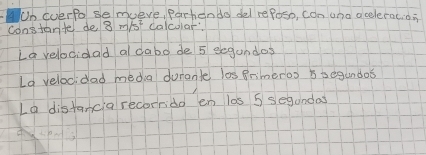 Un cuerpo se mueve, Parhendo del reposo, con una aceleracion
constante de 8 m/s² calcular:
La velocidad al cabo de 5 segundos
La velocidad media durante los primeros 5 segundos
La distancia recorrido en los 5 segundos